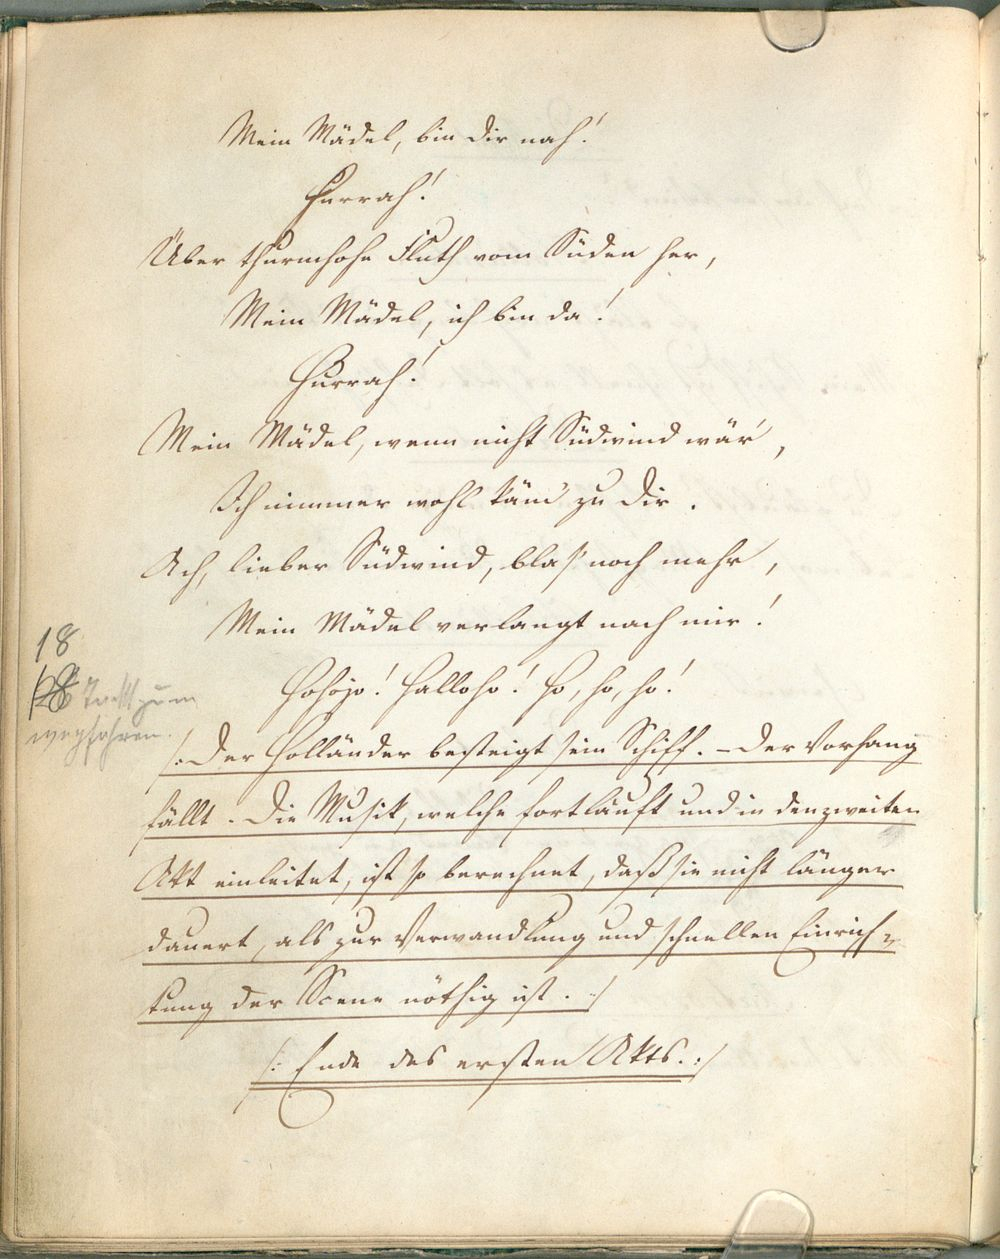 Mein Mädel, bin dir nah!
Hurrah!
Über thurmhohe Fluth vom Süden her,
Mein Mädel, ich bin da!
Hurrah!
Mein Mädel, wenn nicht Südwind wär',
Ich nimmer wohl käm' zu dir.
Ach, lieber Südwind, blas' noch mehr,
Mein Mädel verlangt nach mir!
Hohojo! Halloho! Ho, ho, ho!
18
Takt zum
wegfahren.
/: Der Holländer besteigt sein Schiff. – Der Vorhang
fällt. Die Musik, welche fortläuft und in den zweiten
Akt einleitet, ist so berechnet, daß sie nicht länger
dauert, als zur Verwandlung und schnellen Einrich=
tung der Scene nöthig ist. :/
/: Ende des ersten Akts. :/